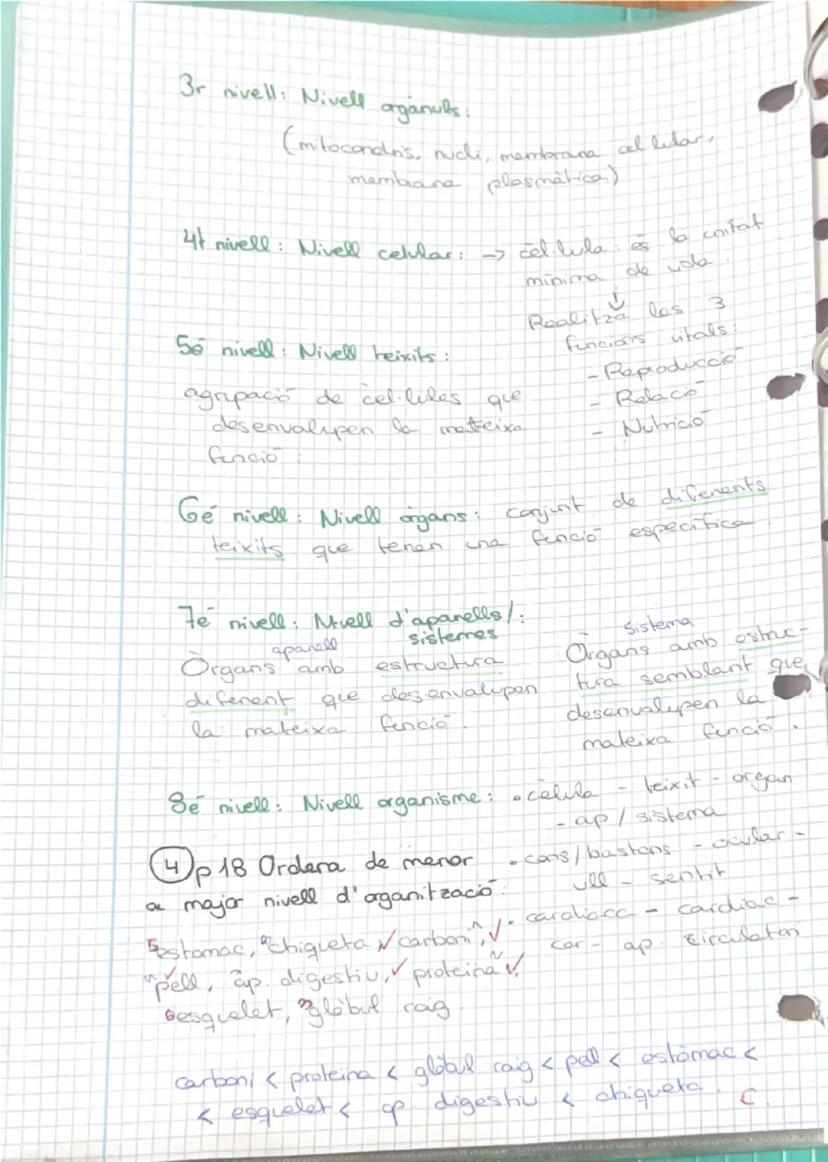 3r nivell: Nivell orgànuls:
(mitocondris, nucli, membrana cel·lular,
membrana plasmàtica)
4t nivell: Nivell celular: -> cèl·lula: és la unitat
mínima de vida.
↓
Realitza les 3
funcions vitals:
- Reproducció
- Relació
- Nutrició
5è nivell: Nivell teixits:
agrupació de cel·lules que
desenvalupen la matteixa
funció.
6é nivell: Nivell òrgans: conjunt de diferents
teixits que tenen una funció específica.
7é nivell: Nivell d'aparells/:
sistemes
aparell
Òrgans amb estructura
diferent que desenvalupen
la mateixa funció.
Sistema
Òrgans amb estruc-
tura semblant que
desenvalupen la
mateixa funció.
8é nivell: Nivell organisme: • cèlula - teixit - organ
- ap / sistema
• cons/bastons - ocular -
ull - sentit
• cardiaca - cardiac -
cor - ap circulatori
4 p18 Ordena de menor
a major nivell d'organització:
5 estomac, chiqueta ✓ carboni, ✓
pell, ap. digestiu, ✓ proteina ✓
6 esquelet, 3 glòbul roig.
carboni < proteina < glòbul roig < pell < estómac <
< esquelet < ap. digestiu < chiqueta. C.